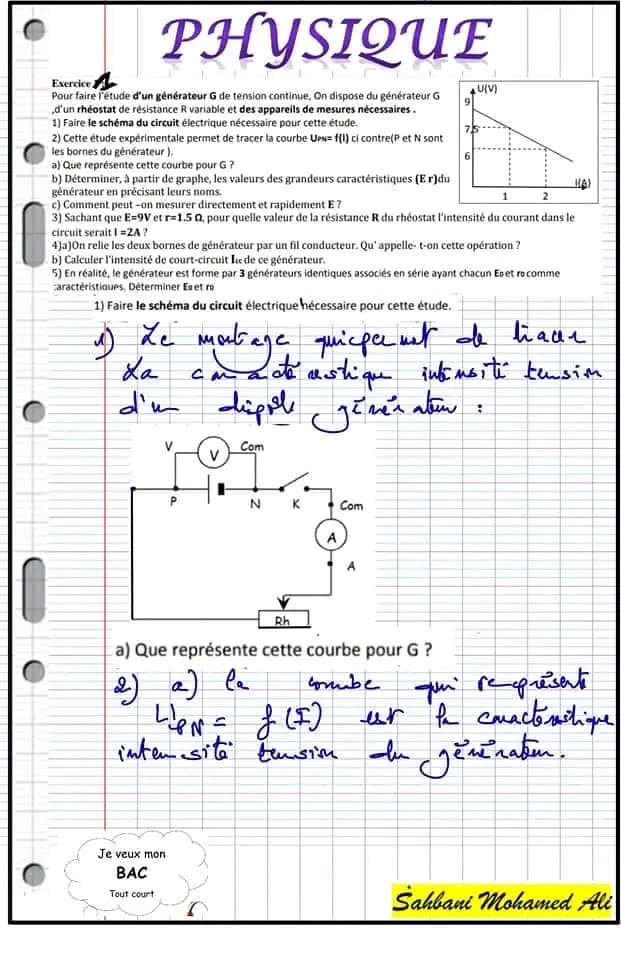 PHYSIQUE
Exercice 1
Pour faire l'étude d'un générateur G de tension continue, On dispose du générateur G
,d'un rhéostat de résistance R variable et des appareils de mesures nécessaires .
1) Faire le schéma du circuit électrique nécessaire pour cette étude.
2) Cette étude expérimentale permet de tracer la courbe UPN= f(I) ci contre(P et N sont
les bornes du générateur ).
a) Que représente cette courbe pour G ?
b) Déterminer, à partir de graphe, les valeurs des grandeurs caractéristiques (E r)du
générateur en précisant leurs noms.
c) Comment peut –on mesurer directement et rapidement E ?
3) Sachant que E=9V et r=1.5 Ω, pour quelle valeur de la résistance R du rhéostat l'intensité du courant dans le
circuit serait I =2A ?
4)a)On relie les deux bornes de générateur par un fil conducteur. Qu' appelle- t-on cette opération ?
b) Calculer l'intensité de court-circuit Icc de ce générateur.
5) En réalité, le générateur est forme par 3 générateurs identiques associés en série ayant chacun E0 et r0 comme
caractéristiques. Déterminer E0 et r0
U(V)
9
7,5
6
I(A)
1 2
1) Faire le schéma du circuit électrique nécessaire pour cette étude.
1) Le montage qui permet de tracer
La caractéristique intensité tension
d'un dipôle générateur :
V Com
V
P N K Com
A
A
Rh
a) Que représente cette courbe pour G ?
2) a) la courbe qui représente
UPN = f(I) est la caractéristique
intensité tension du générateur.
Je veux mon
BAC
Tout court
Sahbani Mohamed Ali